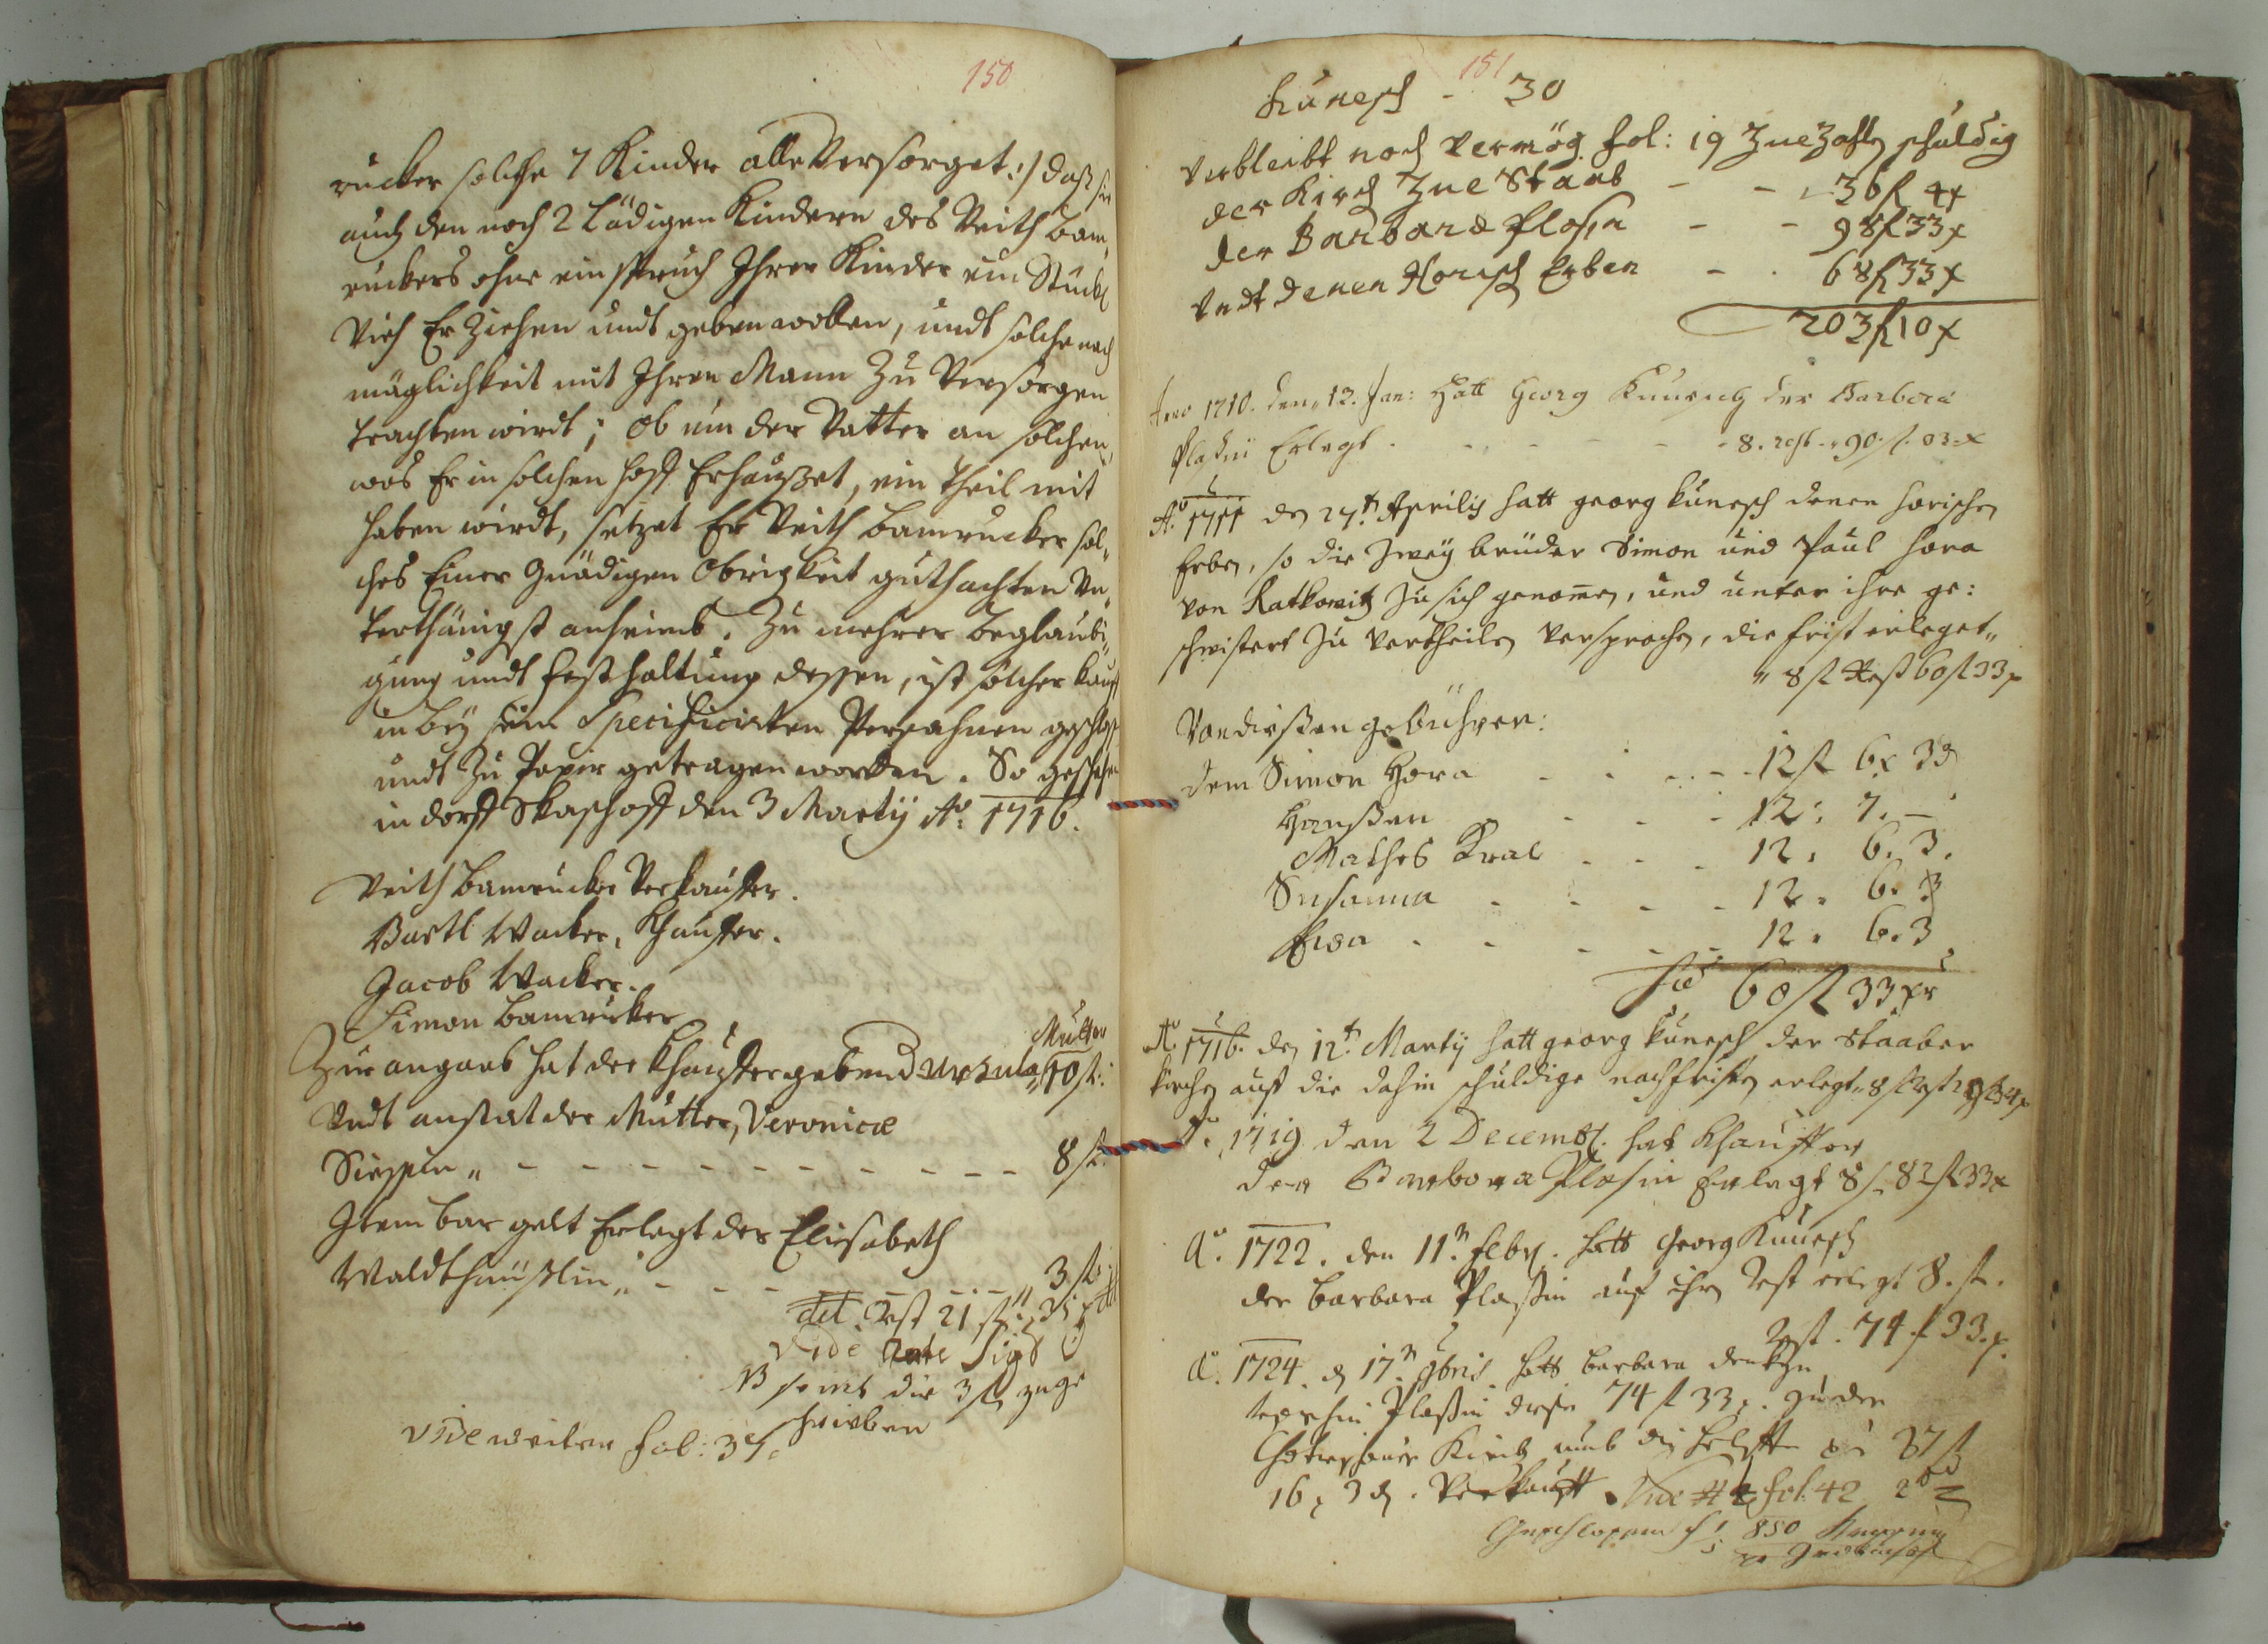 150
rucker solche 7 Kinder alle Versorget :/ daß sie
auch den noch 2 Lädigen Kindern des Veith Bam,,
ruckers ohne ein spruch Ihrer Kinder ein Stückl
Vieh Er Ziehen undt geben wollen, undt solche nach
möglichkeit mit Ihren Mann Zu Versorgen
trachten wirdt; Ob nun der Vatter an solchen,
was Er in solchen Hoff Erhaußet, ein Theil mit
haben wirdt, setzet Er Veith Bamrucker sol,,
ches Einer Gnädigen Obrigkeit gutsachten Un,,
terthänigst anheimb. Zu mehrer beglaubi,,
gung undt festhaltung dessen, ist solcher kauff
in beÿ sein Specificirten Persohnen geschloß
undt Zu Papir getragen worden. So geschehen
in dorff Skaschoff den 3 Martÿ Aō: 1716.
Veith Bamrucker Verkauffer.
Bartl Wacker, Khauffer.
Jacob Wacker.
Simon Bamrucker
Zur angaab hat der Khauffer geben d Ursula Mutter 10 f:
Undt anstat der Mutter, Veronicæ
Sierpin ,, - - - - - - - - - - - - 8 f.
Item bar gelt Erlegt der Elisabeth
Waldthaußlin ,, - - - - - - - - 3 f:
det. Rest 21 f
Vide
NB somit die 3 f zuge
schrieben
vide weiter fol: 37.
151
Kunesch - 30
Verbleibt noch vermög. fol: 19 Zue Zahlen schuldig
der Kirch Zue Staab - - 36 f 4 x
der Barbara Plaßin - - 98 f 33 x
Undt denen Horisch Erben - - 68 f 33 x
203 f 10 x
Anno 1710. den 12. Jan: Hatt Georg Kunesch der Barbora
Plaßin Erlegt - - - - - 8. rest - 90 f. 33 x
Aō. 1711 den 27t. Aprilis hatt georg kunesch denen horischen
Erben, so die Zweÿ brüder Simon und Paul hora
von Ratkowitz Zu sich genomen, und unter ihre ge:
schwistert Zu vertheilen versprochen, die frist erleget,,
,, 8 f Rest 60 f 33 x
Von dießen gebühren:
dem Simon Hora - - - - 12 f 6 x 3 d
Hanßen - - - 12 : 7. -
Mathes Kral - - - 12. 6. 3.
Susanna - - - - 12. 6. 3
Eva - - - - - 12. 6. 3
Sa 60 f 33 xr
Aō. 1716. den 12t. Martÿ hatt georg kunesch der Staaber
kirchen auff die dahin schuldige nachfristen erlegt ,, 8 f rest 28 f 4 x
Aō. 1719 den 2 Decembr. hat Khauffer
der Barbora Plaßin Erlegt 8 f. 82 f 33 x
Aō. 1722. den 11n. febr. hatt Georg Kunesch
der barbara Plaßin auf ihren Rest erlegt 8. f.
Rest. 74 f 33 x.
Aō. 1724. d 17n. 9bris hatt barbara
Plaßin diese 74 f 33 x. Zu der
Chotieschauer Kirch umb die helffte per 37 f
16 x 3 d. Verkaufft. Vide fol. 42
850